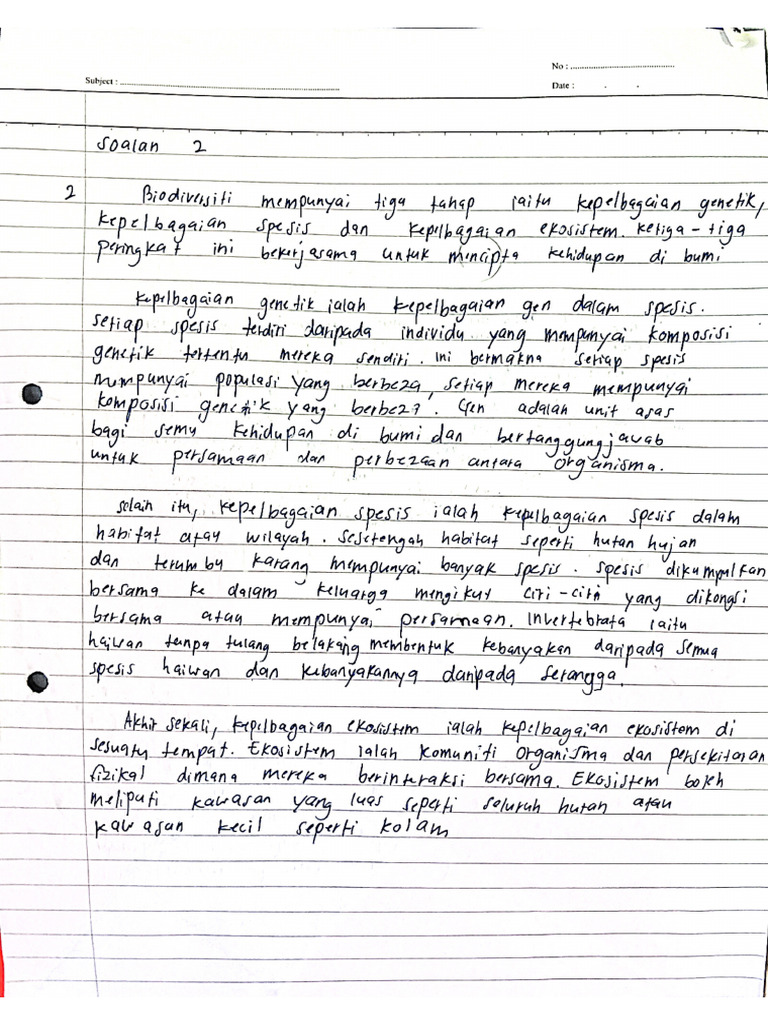 No : ..............................
Subject : ..............................
Date : . .
Soalan 2
2 Biodiversiti mempunyai tiga tahap iaitu kepelbagaian genetik,
kepelbagaian spesis dan kepelbagaian ekosistem. Ketiga-tiga
peringkat ini bekerjasama untuk mencipta kehidupan di bumi
Kepelbagaian genetik ialah kepelbagaian gen dalam spesis.
setiap spesis terdiri daripada individu yang mempunyai komposisi
genetik tertentu mereka sendiri. Ini bermakna setiap spesis
mempunyai populasi yang berbeza, setiap mereka mempunyai
komposisi genetik yang berbeza. Gen adalah unit asas
bagi semu kehidupan di bumi dan bertanggungjawab
untuk persamaan dan perbezaan antara organisma.
Selain itu, kepelbagaian spesis ialah kepelbagaian spesis dalam
habitat atau wilayah. Sesetengah habitat seperti hutan hujan
dan terumbu karang mempunyai banyak spesis. Spesis dikumpulkan
bersama ke dalam keluarga mengikut ciri-ciri yang dikongsi
bersama atau mempunyai persamaan. Invertebrata iaitu
haiwan tanpa tulang belakang membentuk kebanyakan daripada semua
spesis haiwan dan kebanyakannya daripada serangga.
Akhir sekali, kepelbagaian ekosistem ialah kepelbagaian ekosistem di
sesuatu tempat. Ekosistem ialah komuniti organisma dan persekitaran
fizikal dimana mereka berinteraksi bersama. Ekosistem boleh
meliputi kawasan yang luas seperti seluruh hutan atau
kawasan kecil seperti kolam